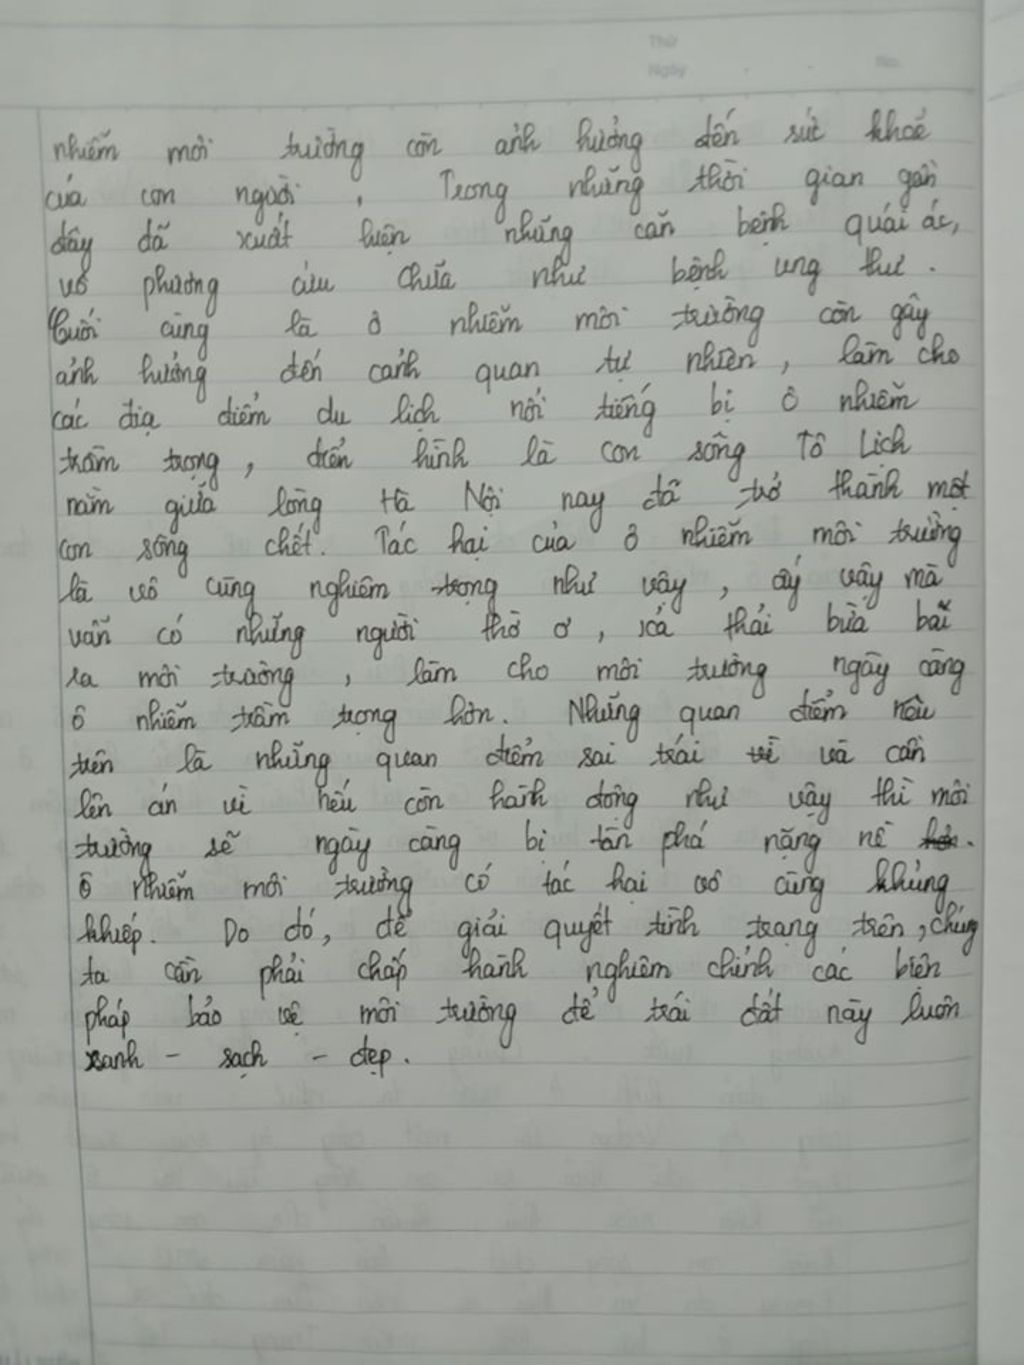 Thứ
Ngày
No.
nhiễm môi trường còn ảnh hưởng đến sức khoẻ
của con người , Trong những thời gian gần
đây đã xuất hiện những căn bệnh quái ác,
vô phương cứu chữa như bệnh ung thư .
Cuối cùng là ô nhiễm môi trường còn gây
ảnh hưởng đến cảnh quan tự nhiên , làm cho
các địa điểm du lịch nổi tiếng bị ô nhiễm
trầm trọng , điển hình là con sông Tô Lịch
nằm giữa lòng Hà Nội nay đã trở thành một
con sông chết. Tác hại của ô nhiễm môi trường
là vô cùng nghiêm trọng như vậy , ấy vậy mà
vẫn có những người thờ ơ , xả thải bừa bãi
ra môi trường , làm cho môi trường ngày càng
ô nhiễm trầm trọng hơn. Những quan điểm nêu
trên là những quan điểm sai trái và cần
lên án vì nếu còn hành động như vậy thì môi
trường sẽ ngày càng bị tàn phá nặng nề .
ô nhiễm môi trường có tác hại vô cùng khủng
khiếp. Do đó, để giải quyết tình trạng trên , chúng
ta cần phải chấp hành nghiêm chỉnh các biện
pháp bảo vệ môi trường để trái đất này luôn
xanh - sạch - đẹp .